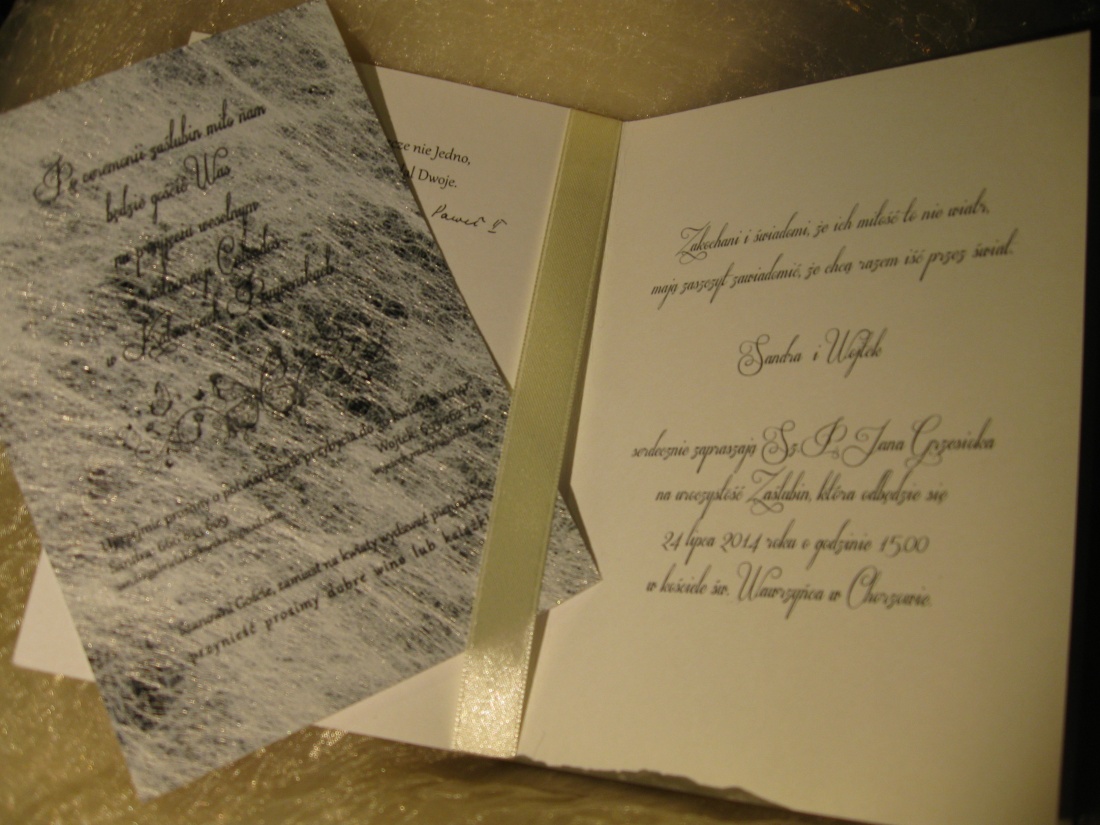 Po ceremonii zaślubin miło nam
będzie gościć Was
na przyjęciu weselnym
w
Uprzejmie prosimy o potwierdzenie przybycia do
Sandra:
Wojtek
Szanowni Goście, zamiast na kwiaty wydawać pieniążki
przynieść prosimy dobre wina lub
nie Jedno,
Dwoje.
Paweł II
Zakochani i świadomi, że ich miłość to nie wiatr,
mają zaszczyt zawiadomić, że chcą razem iść przez świat.
Sandra i Wojtek
serdecznie zapraszają Sz. P. Jana Grzesioka
na uroczystość Zaślubin, która odbędzie się
24 lipca 2014 roku o godzinie 15.00
w kościele św. Wawrzyńca w Chorzowie.